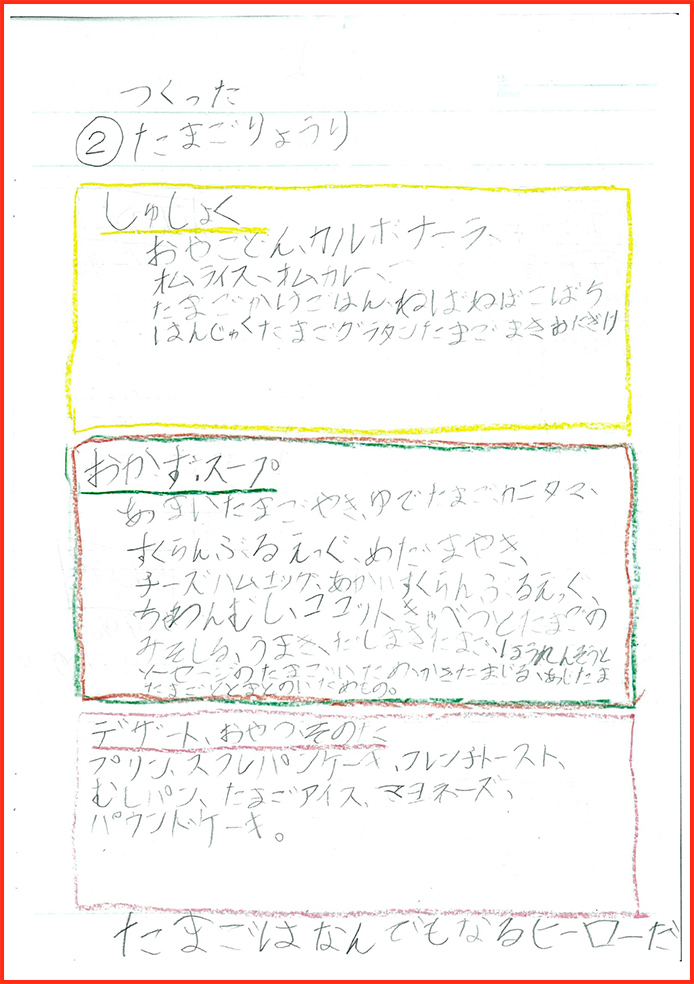 つくった
②たまごりょうり
しゅしょく
おやこどん、カルボナーラ、
オムライス、オムカレー、
たまごかけごはん、ねばねばこばち
はんじゅくたまごグラタン、たまごまきおにぎり
おかず・スープ
あまいたまごやき、ゆでたまご、カニタマ、
すくらんぶるえっぐ、めだまやき、
チーズハムエッグ、あかいすくらんぶるえっぐ、
ちゃわんむし、ココットきゃべつとたまごの
みそしる、うまき、だしまきたまご、ほうれんそうと
ソーセージのたまごいため、かきたまじる、あじたま
たまごととまとのいためもの。
デザート、おやつ、そのた
プリン、スフレパンケーキ、フレンチトースト、
むしパン、たまごアイス、マヨネーズ、
パウンドケーキ。
たまごはなんでもなるヒーローだ